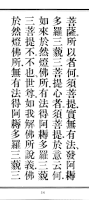 菩薩所以者何須菩提實無有法發阿耨
多羅三藐三菩提心者須菩提於意云何
如來於然燈佛所有法得阿耨多羅三藐
三菩提不不也世尊如我解佛所說義佛
於然燈佛所無有法得阿耨多羅三藐三